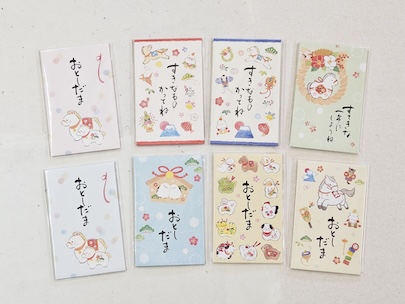 おとしだま
すきなもの
かってね
すきなもの
かってね
すきな
ように
しようね
おとしだま
おとし
だま
おとしだま
おとし
だま